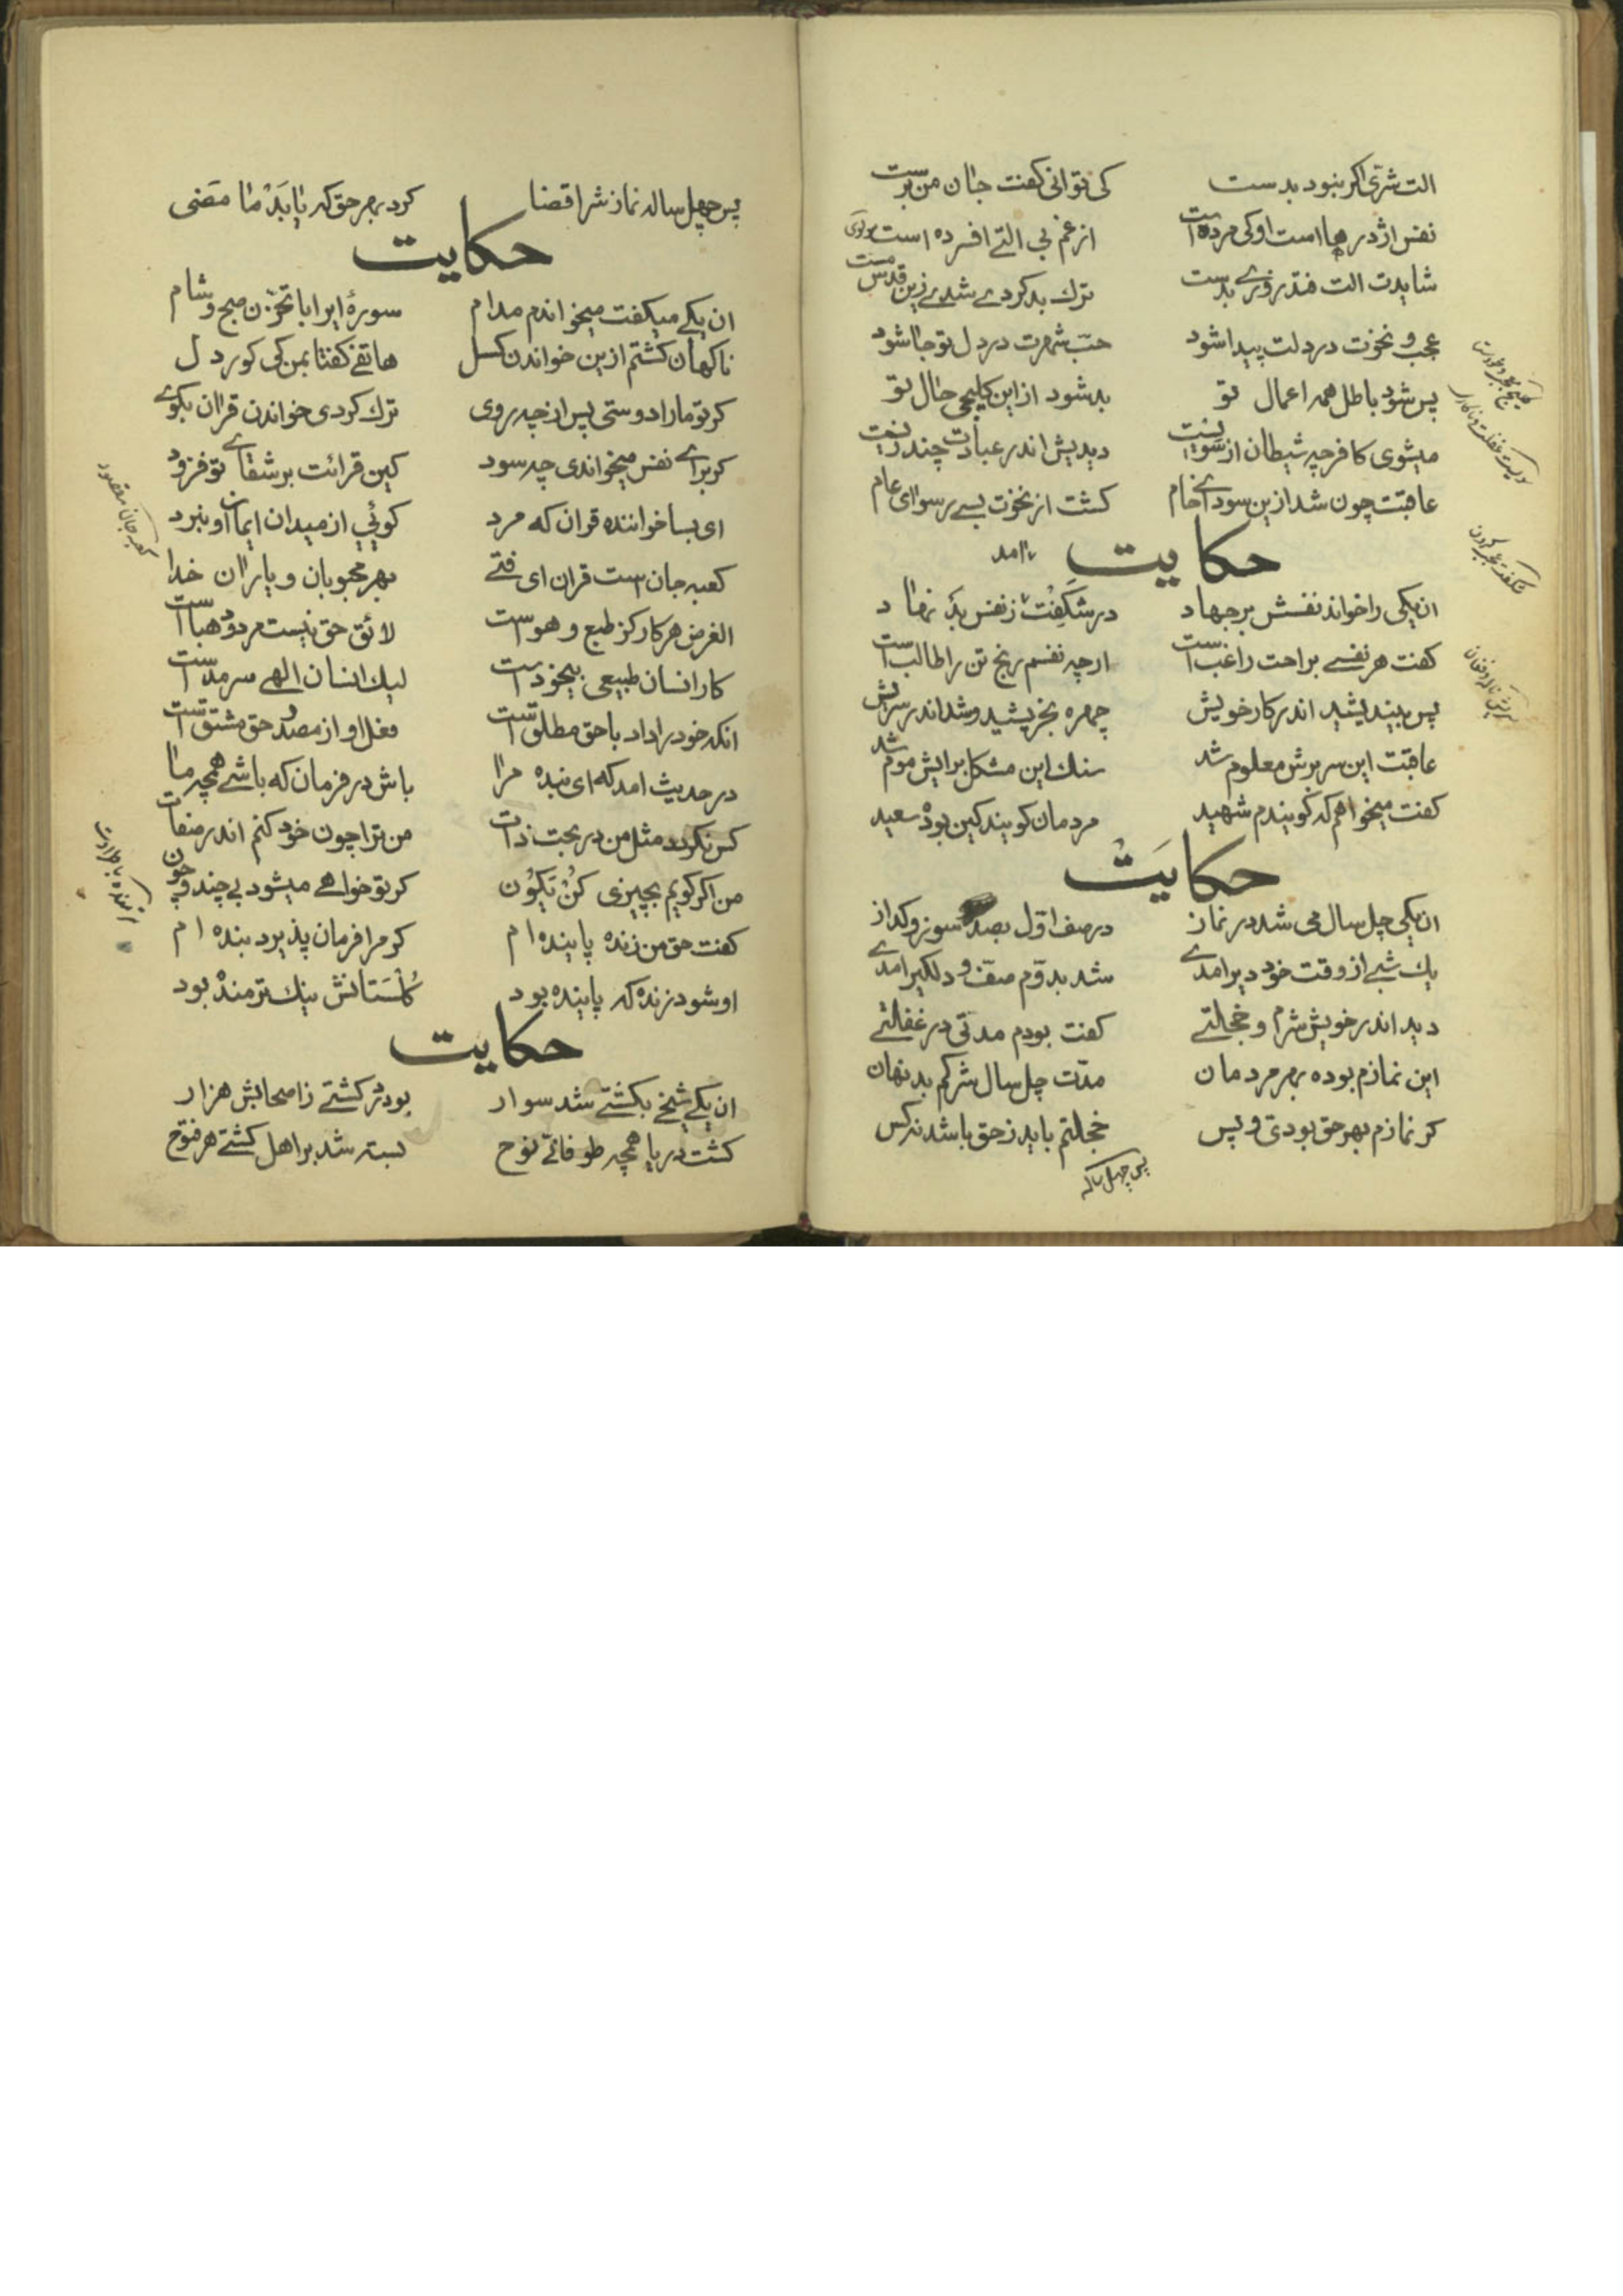 الت شرّی اکر نبود بدست کی توانی کفت جان من برست
نفس اژدرها است اوکی مرده است از غم بی التی افسرده است مولوی
شایدت الت فتد روزی بدست ترك بد کردی شدی زین قدس مست
عجب و نخوت در دلت پیدا شود حبّ شهرت در دل تو جا شود
پس شود باطل همه اعمال تو بد شود از این کلیجی حال تو
میشوی کافر چه شیطان از منیت دیدیش اندر عبادت چند زیت
عاقبت چون شد ازین سودای خام کشت از نخوت بسی رسوای عام
حکایت
آن یکی را خواند نفسش بر جهاد در شکفت امد ز نفس بد نهاد
کفت هر نفسی براحت راغب است ارچه نفسم رنج تن را طالب است
پس بیندیشید اندر کار خویش چهره بخریشید و شد اندر سریش
عاقبت این سر برش معلوم شد سنك این مشکل برایش موم شد
کفت میخواهم که کویندم شهید مردمان کویند کین بود سعید
حکایت
ان یکی چل سال می شد در نماز در صف اوّل بصد سوز و کداز
یك شبی از وقت خود دیر امدی شد بدوّم صف و دلکیر امدی
دید اندر خویش شرم و خجلتی کفت بودم مدتی در غفلتی
این نمازم بوده بهر مردمان مدّت چل سال شرکم بد نهان
کر نمازم بهر حق بودی و پس خجلتم باید ز حق باشد نه کس
پس چهل ساله
پس چهل ساله نماز شرا قضا کرد بهر حق که تا یابد ما مضی
حکایت
ان یکی میکفت میخواندم مدام سورهٔ ایرا با تحزن صبح و شام
ناکهان کشتم ازین خواندن کسل هاتفی کفتا بمن کی کور دل
کر تو مارا دوستی پس از چه روی ترك کردی خواندن قران بکوی
کر برای نفس میخواندی چه سود کین قرائت بر شقای تو فزود
ای بسا خواننده قران که مرد کوئی از میدان ایمان او نبرد
کعبه جان است قران ای فتی بهر محجوبان و یاران خدا
الغرض هر کار کز طبع و هوست لائق حق نیست مردود هباست
کار انسان طبیعی بیخود است لیك انسان الهی سرمد است
انکه خود را داد با حق مطلق است فعل او از مصدر حق مشتق است
در حدیث امد که ای بنده مرا باش در فرمان که باشی همچه ما
کس نکردد مثل من در بحت ذات من ترا چون خود کنم اندر صفات
من اکر کویم بچیزی کُنْ یَکُون کر تو خواهی میشود بی چند و چون
کفت حق من زنده پاینده ام کو مرا فرمان پذیرد بنده ام
او شود زنده که پاینده بود کُلْسَتانش نیك ترمند بود
حکایت
ان یکی شیخی بکشتی شد سوار بود در کشتی ز اصحابش هزار
کشت دریا همچه طوفانی نوح بسته شد بر اهل کشتی هر فتوح
کعبه جان مقصود